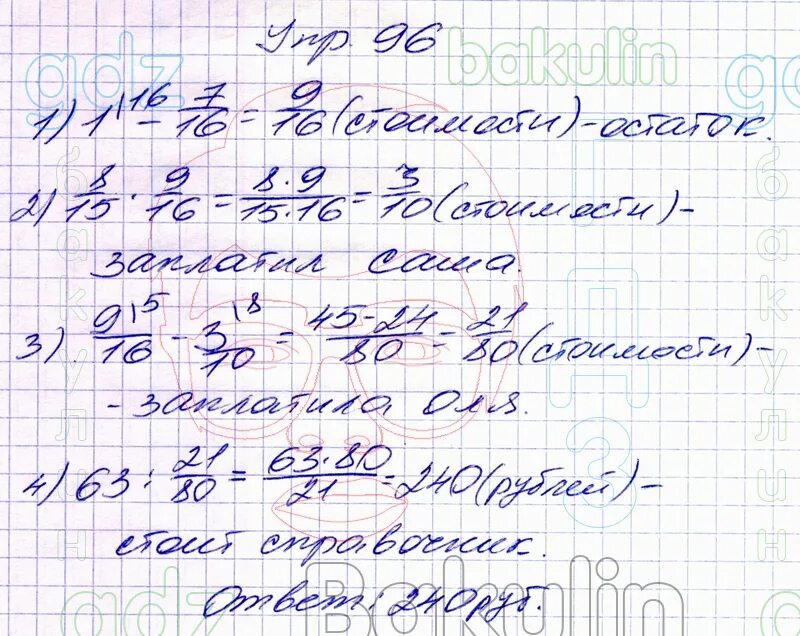 Упр. 96
1) 1\16 - 7/16 = 9/16 (стоимости) - остаток.
2) 8/15 · 9/16 = 8·9/15·16 = 3/10 (стоимости) -
заплатил Саша.
3) 9\5/16 - 3\8/10 = 45-24/80 = 21/80 (стоимости) -
- заплатила Оля.
4) 63 : 21/80 = 63·80/21 = 240 (рублей) -
стоит справочник.
Ответ: 240 руб.
gdz
bakulin
gdz
бакулин
ГДЗ
бакулин
gdz
Bakulin
gdz